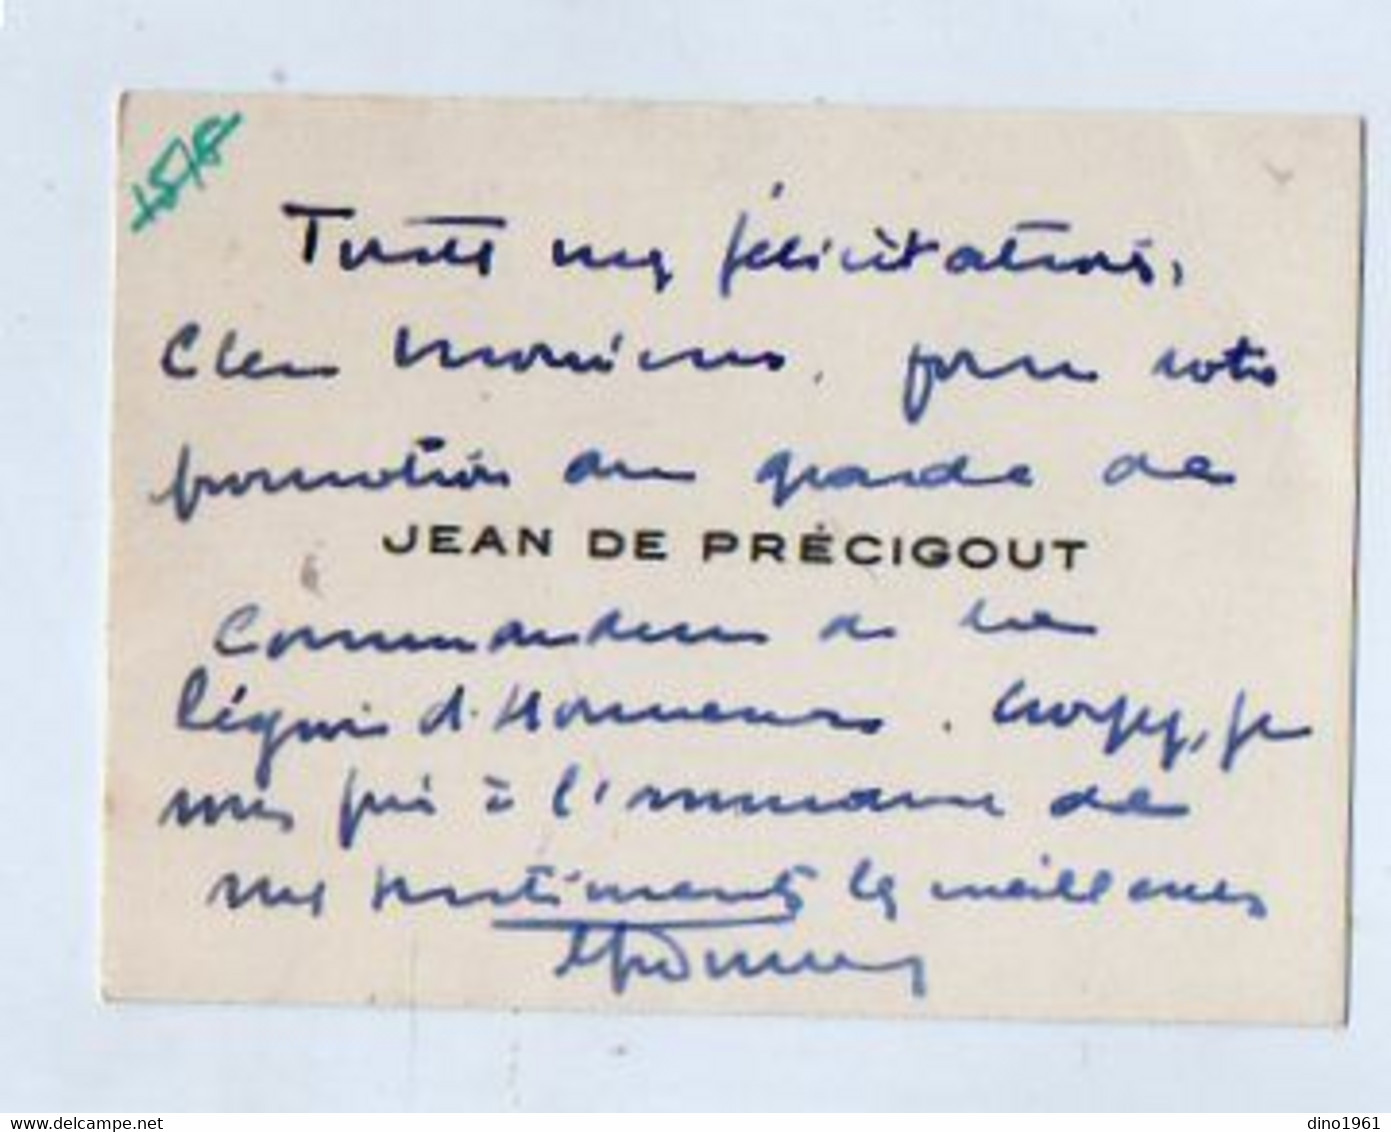 15/8
Toutes mes félicitations,
Cher Monsieur, pour votre
promotion au grade de
JEAN DE PRÉCIGOUT
Commandeur de la
Légion d'Honneur. Croyez, je
vous prie à l'assurance de
mes sentiments les meilleurs
dino1961